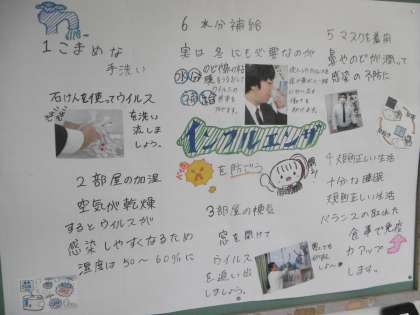 1 こまめな
手洗い
石けんを使ってウイルス
を洗い
流しま
しょう。
2 部屋の加湿
空気が乾燥
するとウイルスが
感染しやすくなるため
湿度は50〜60%に
6 水分補給
実は冬にも必要なのが
水分
補給
インフルエンザ
を防ごう
3 部屋の換気
窓を開けて
ウイルス
を追い出
しましょう。
5 マスクを着用
鼻やのどが潤って
感染の予防に
4 規則正しい生活
十分な睡眠
規則正しい生活
バランスの取れた
食事で免疫
力アップ
します。